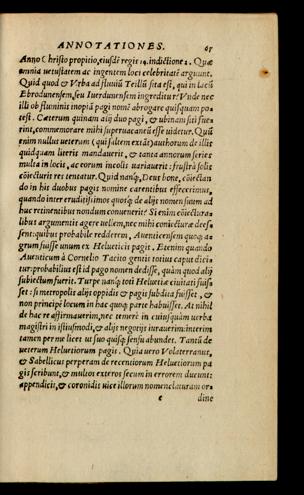 ANNOTATIONES. 65
Anno Christo propitio, eiusdē regis 14. indictione 2. Quæ
omnia uetustatem ac ingentem loci celebritatē arguunt.
Quid quod & Vrba ad fluuiū Teillū sita est, qui in lacū
Ebrodunensem, seu Iuerdunensem ingreditur? Vnde nec
illi ob fluminis inopiā pagi nomē abrogare quisquam po=
test. Cæterum quinam alij duo pagi, & ubinam siti fue=
rint, commemorare mihi superuacaneū esse uidetur. Quū
enim nullus ueterum (qui saltem extāt) authorum de illis
quidquam literis mandauerit, & tanta annorum series
multa in locis, ac eorum incolis uariauerit: frustrà solis
cōiecturis res tentatur. Quid nanq;, Deus bone, cōiectan
do in his duobus pagis nomine carentibus effecerimus,
quando inter eruditißimos quosq; de alijs nomen suum ad
huc retinentibus nondum conuenerit? Si enim cōiectura=
libus argumentis agere uellem, nec mihi coniecturæ dees=
sent: quibus probabile redderem, Auenticensem quoq; a=
grum fuisse unum ex Helueticis pagis. Etenim quando
Auenticum à Cornelio Tacito gentis totius caput dici=
tur: probabilius est id pago nomen dedisse, quàm quod alij
subiectum fuerit. Turpe nanq; toti Heluetiæ ciuitati fuis=
set: si metropolis alijs oppidis & pagis subdita fuisset, &
non principē locum in hac quoq; parte habuisset. At nihil
de hac re affirmauerim, nec temerè in cuiusquàm uerba
magistri in istiusmodi, & alijs negocijs iurauerim: interim
tamen per me licet ut suo quisq; sensu abundet. Tantū de
ueterum Heluetiorum pagis. Quia uero Volaterranus,
& Sabellicus perperam de recentiorum Heluetiorum pa
gis scribunt, & multos exteros secum in errorem ducunt:
appendicis, & coronidis uice illorum nomenclaturam or=
e dine